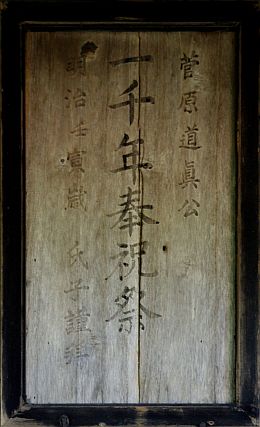 菅原道眞公
一千年奉祝祭
明治壬寅歳 氏子謹